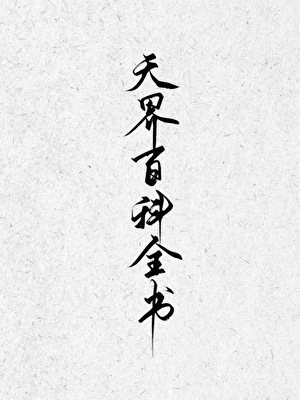 天界百科全书